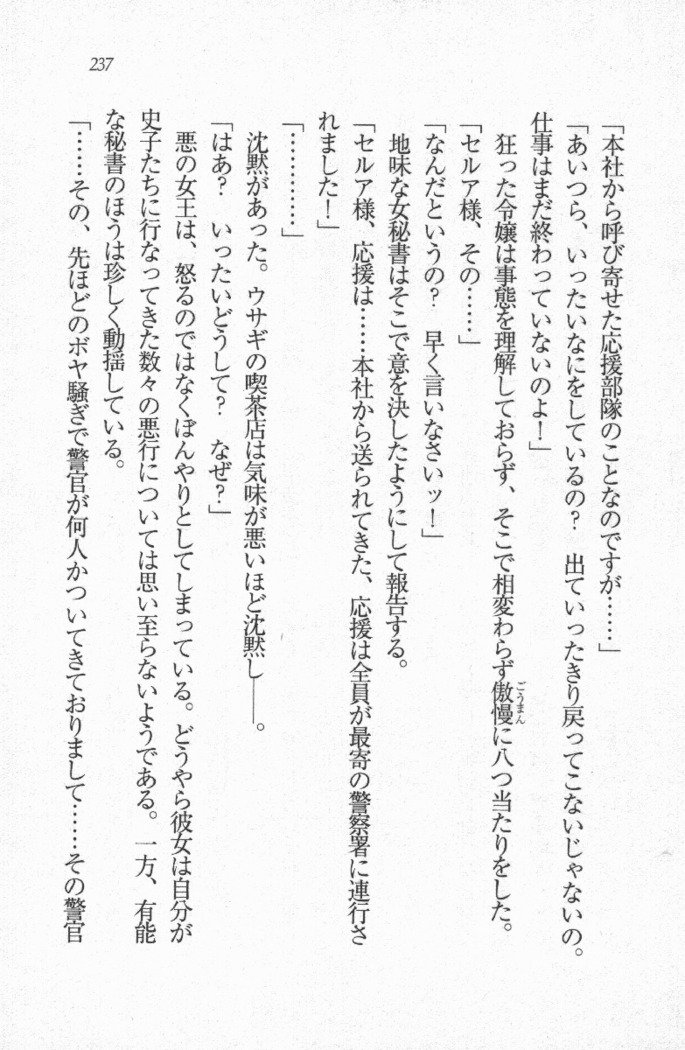 237
「本社から呼び寄せた応援部隊のことなのですが……」
「あいつら、いったいなにをしているの？　出ていったきり戻ってこないじゃないの。
仕事はまだ終わっていないのよ！」
狂った令嬢は事態を理解しておらず、そこで相変わらず傲慢に八つ当たりをした。
ごうまん
「セルア様、その……」
「なんだというの？　早く言いなさいッ！」
地味な女秘書はそこで意を決したようにして報告する。
「セルア様、応援は……本社から送られてきた、応援は全員が最寄の警察署に連行さ
れました！」
「…………」
沈黙があった。ウサギの喫茶店は気味が悪いほど沈黙し――。
「はあ？　いったいどうして？　なぜ？」
悪の女王は、怒るのではなくぼんやりとしてしまっている。どうやら彼女は自分が
史子たちに行なってきた数々の悪行については思い至らないようである。一方、有能
な秘書のほうは珍しく動揺している。
「……その、先ほどのボヤ騒ぎで警官が何人かついてきておりまして……その警官